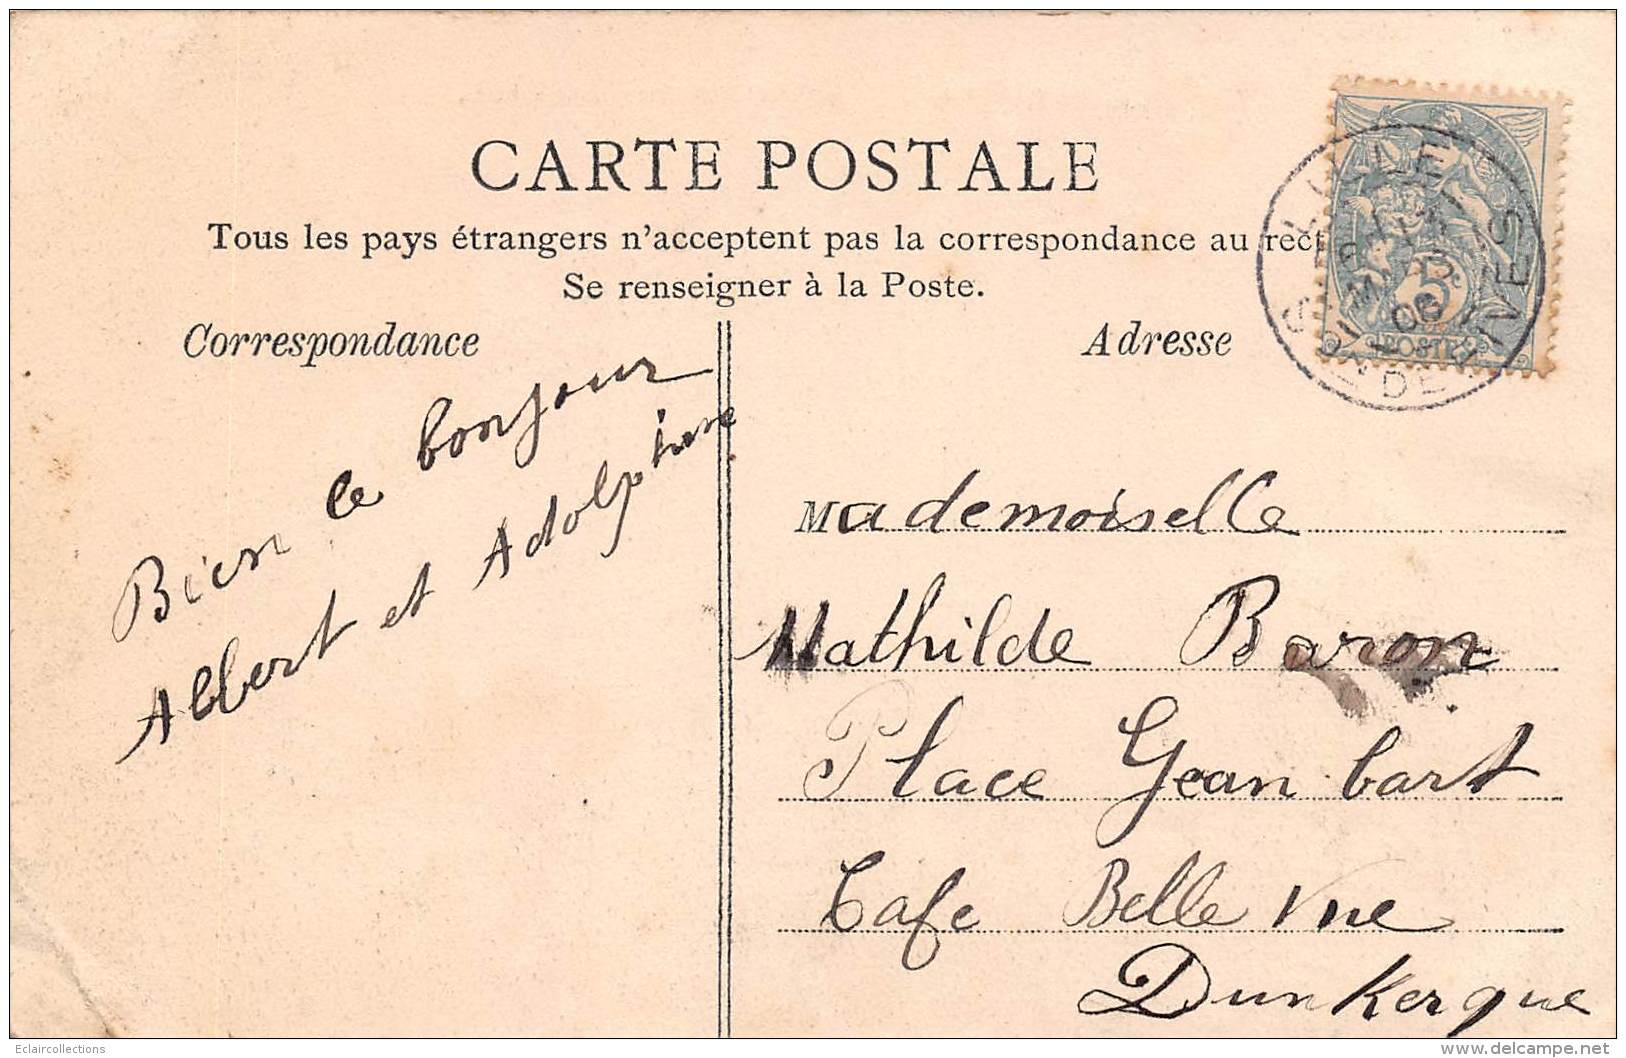 CARTE POSTALE
Tous les pays étrangers n'acceptent pas la correspondance au rect
Se renseigner à la Poste.
Correspondance
Adresse
LILLE
06
DE FIVES
5c
POSTES
Bien le bonjour
Albert et Adolphine
Mademoiselle
Mathilde Baron
Place Jean bart
Cafe Belle Vue
Dunkerque
Eclaircollections
www.delcampe.net